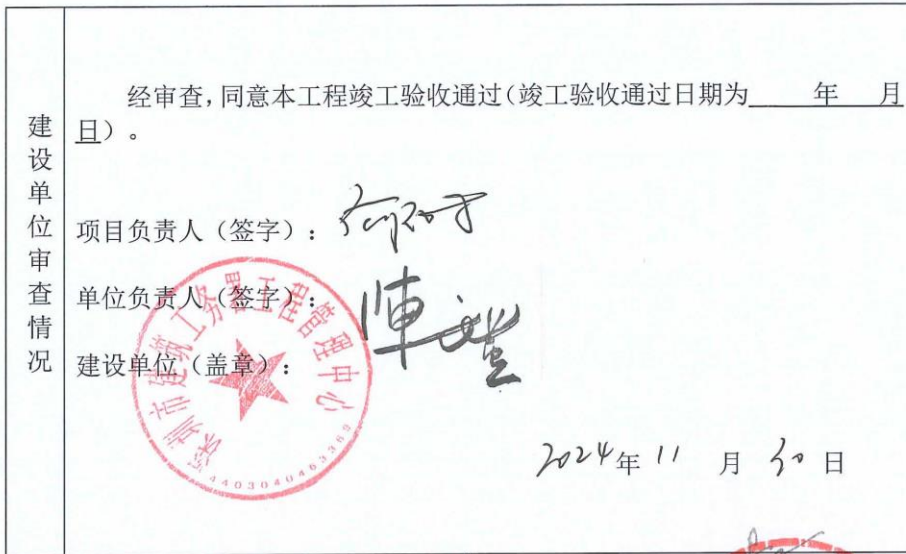 建设单位审查情况
经审查,同意本工程竣工验收通过(竣工验收通过日期为 年 月
日)。
项目负责人(签字):
单位负责人(签字):
建设单位(盖章):
深圳市建筑工务署工程管理中心
4403040463369
2024年 11 月 30 日